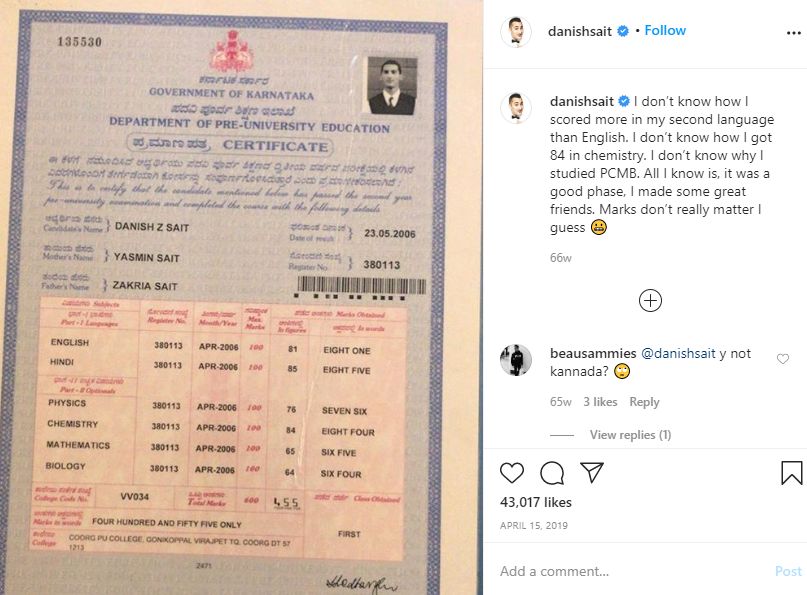 135530
ಕರ್ನಾಟಕ ಸರ್ಕಾರ
GOVERNMENT OF KARNATAKA
ಪದವಿ ಪೂರ್ವ ಶಿಕ್ಷಣ ಇಲಾಖೆ
DEPARTMENT OF PRE-UNIVERSITY EDUCATION
ಪ್ರಮಾಣ ಪತ್ರ CERTIFICATE
This is to certify that the candidate mentioned below has passed the second year
pre-university examination and completed the course with the following details
ಅಭ್ಯರ್ಥಿಯ ಹೆಸರು
Candidate's Name } DANISH Z SAIT
ಫಲಿತಾಂಶ ದಿನಾಂಕ
Date of result } 23.05.2006
ತಾಯಿಯ ಹೆಸರು
Mother's Name } YASMIN SAIT
ನೋಂದಣಿ ಸಂಖ್ಯೆ
Register No. } 380113
ತಂದೆಯ ಹೆಸರು
Father's Name } ZAKRIA SAIT
ವಿಷಯಗಳು Subjects
ಭಾಗ-I ಭಾಷೆಗಳು
Part-I Languages
Register No.
Month/Year
Max. Marks
Marks Obtained
In figures
In words
ENGLISH 380113 APR-2006 100 81 EIGHT ONE
HINDI 380113 APR-2006 100 85 EIGHT FIVE
Part-II Optionals
PHYSICS 380113 APR-2006 100 76 SEVEN SIX
CHEMISTRY 380113 APR-2006 100 84 EIGHT FOUR
MATHEMATICS 380113 APR-2006 100 65 SIX FIVE
BIOLOGY 380113 APR-2006 100 64 SIX FOUR
College Code No. VV034 Total Marks 600 455 Class Obtained
Marks in words FOUR HUNDRED AND FIFTY FIVE ONLY
FIRST
College COORG PU COLLEGE, GONIKOPPAL VIRAJPET TQ, COORG DT 57
1213
2471
danishsait • Follow
danishsait I don't know how I
scored more in my second language
than English. I don't know how I got
84 in chemistry. I don't know why I
studied PCMB. All I know is, it was a
good phase, I made some great
friends. Marks don't really matter I
guess 😬
66w
beausammies @danishsait y not
kannada? 🙄
65w 3 likes Reply
View replies (1)
43,017 likes
APRIL 15, 2019
Add a comment... Post